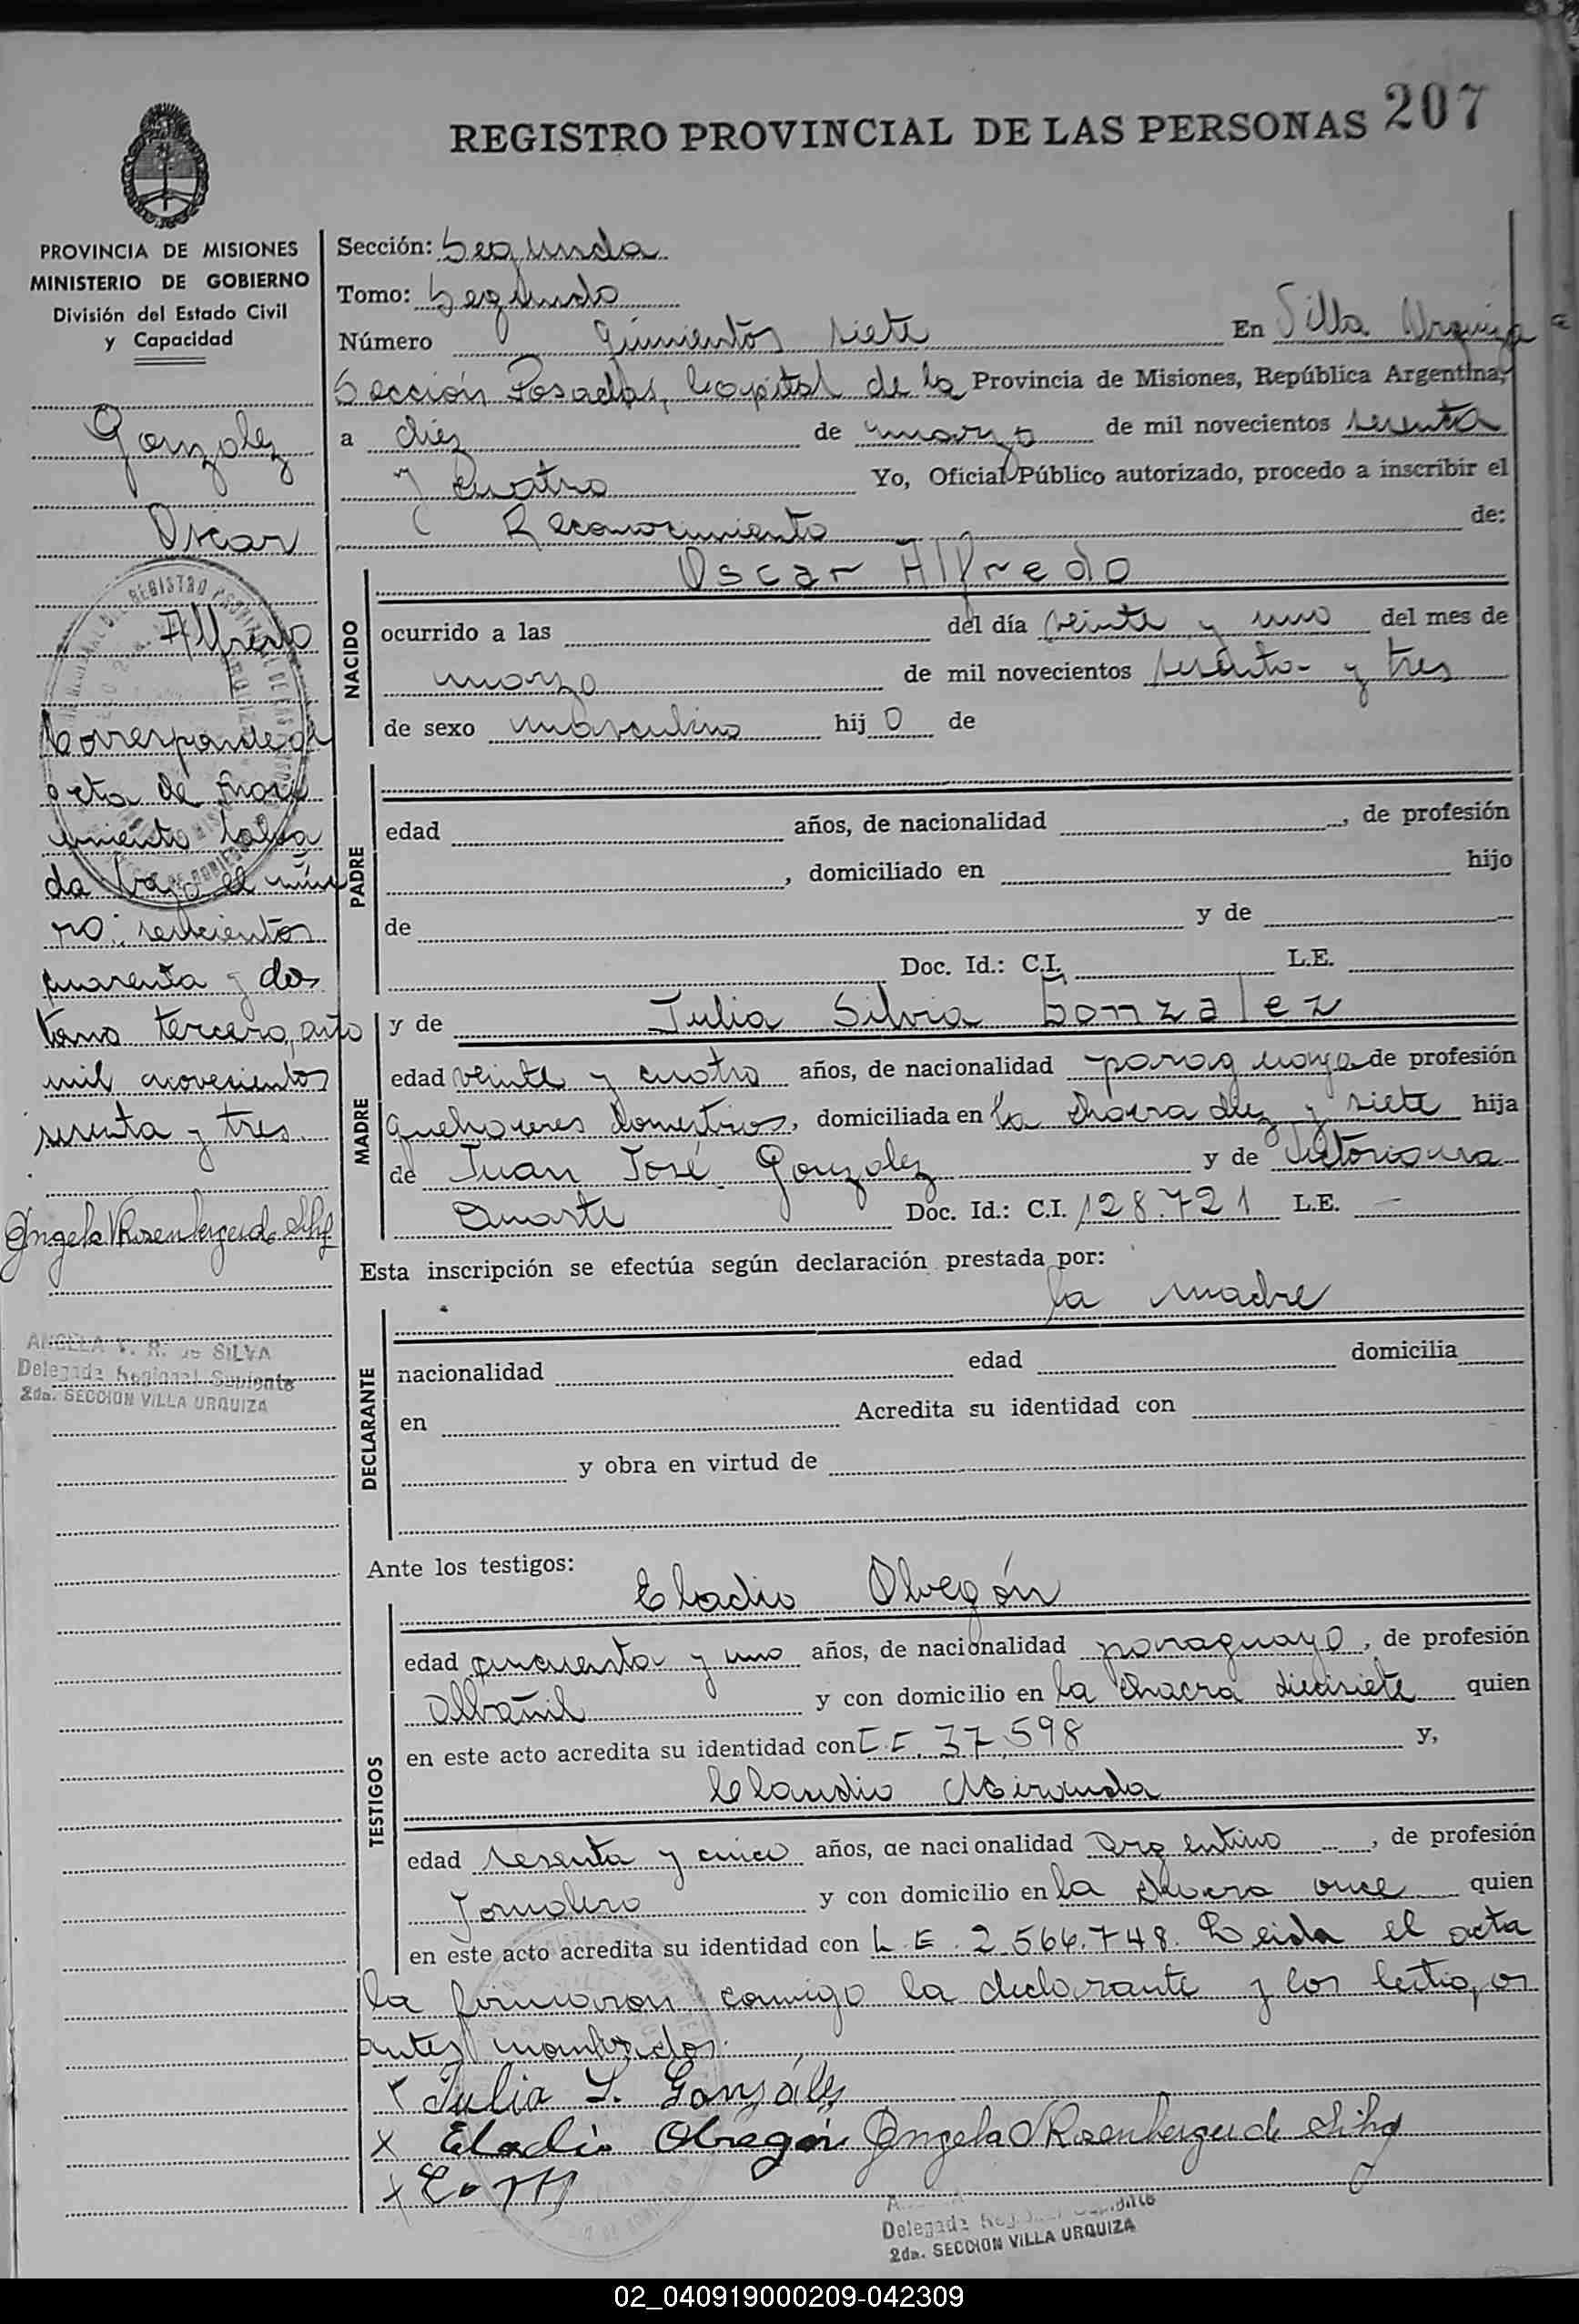 REGISTRO PROVINCIAL DE LAS PERSONAS 207
PROVINCIA DE MISIONES
MINISTERIO DE GOBIERNO
División del Estado Civil
y Capacidad
Gonzalez
Oscar
Alfredo
Corresponde al
acta de naci
miento labra
da bajo el núme
ro: seiscientos
cuarenta y dos
tomo tercero, año
mil novecientos
sesenta y tres.
Angela V Rosenberger de Silva
ANGELA V. R. de SILVA
Delegada Regional Suplente
2da. SECCION VILLA URQUIZA
Sección: Segunda
Tomo: Segundo
Número quinientos siete En Villa Urquiza
Sección Posadas, Capital de la Provincia de Misiones, República Argentina,
a diez de marzo de mil novecientos sesenta
y cuatro Yo, Oficial Público autorizado, procedo a inscribir el
Reconocimiento de:
NACIDO
Oscar Alfredo
ocurrido a las del día veinte y uno del mes de
marzo de mil novecientos sesenta y tres
de sexo masculino hijo de
PADRE
edad años, de nacionalidad , de profesión
, domiciliado en hijo
de y de
Doc. Id.: C.I. L.E.
MADRE
y de Julia Silvia Gonzalez
edad veinte y cuatro años, de nacionalidad paraguaya de profesión
quehaceres domesticos, domiciliada en la chacra diez y siete hija
de Juan José Gonzalez y de Victoriana
Duarte Doc. Id.: C.I. 128.721 L.E. —
Esta inscripción se efectúa según declaración prestada por:
la madre
DECLARANTE
nacionalidad edad domicilia
en Acredita su identidad con
y obra en virtud de
Ante los testigos:
TESTIGOS
Eladio Obregón
edad cincuenta y uno años, de nacionalidad paraguayo, de profesión
Albañil y con domicilio en la chacra diecisiete quien
en este acto acredita su identidad con 37.598 y,
Claudio Miranda
edad sesenta y cinco años, de nacionalidad Argentino, de profesión
Jornalero y con domicilio en la chacra once quien
en este acto acredita su identidad con L.E. 2.564.748. Leida el acta
la firmaron conmigo la declarante y los testigos
antes nombrados.
x Julia S. Gonzáles
x Eladio Obregón Angela V Rosenberger de Silva
x
Delegada
2da. SECCION VILLA URQUIZA
02_040919000209-042309